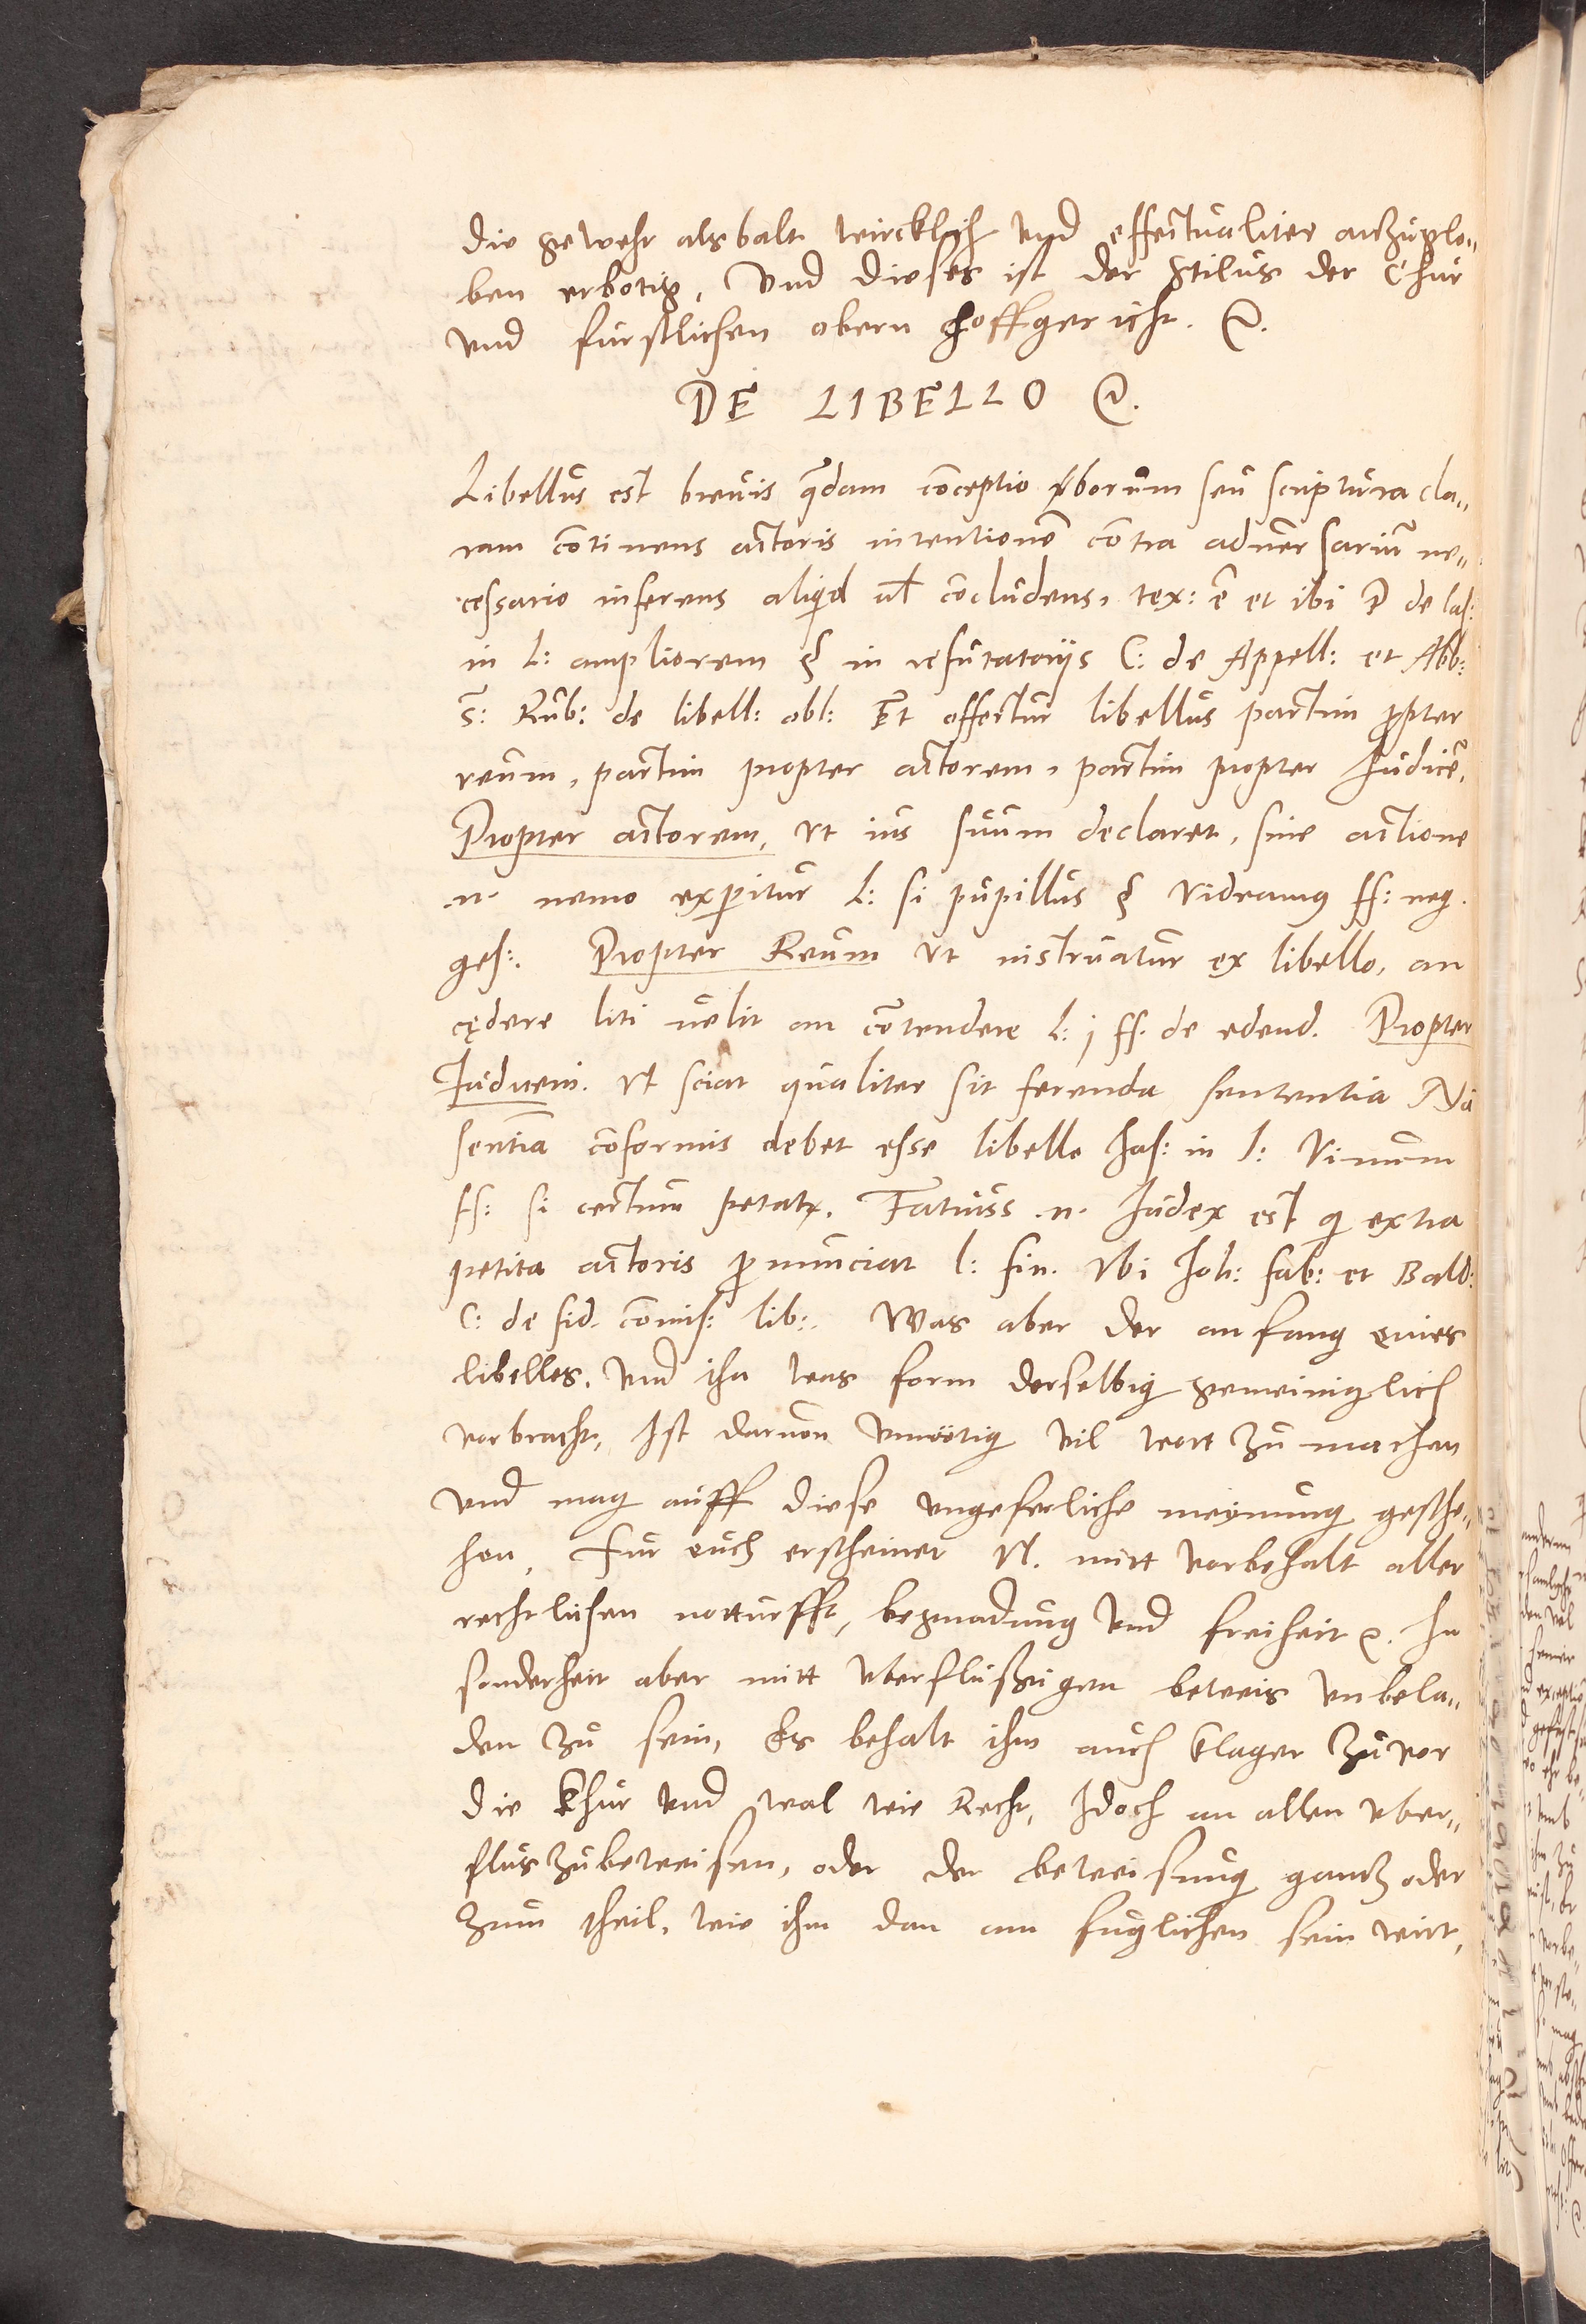 die gewehr alsbalt wircklich und effectualiter anzuglo„
ben erbotig, Und dieses ist der Stilus der Chur
und furstlichen obern Hoffgericht. &.
DE LIBELLO &.
Libellus est breuis quędam conceptio verborum seu scriptura cla„
ram cōtinens actoris intentionē cōtra aduersariū ne„
cessario inferens aliqͥd ul̄ cōcludens, tex: ē et ibi P de Cas:
in L: ampliorem § in refutatorijs C: de Appell: et Abb:
S: Rub: de libell: obl: Et offertur libellus partim ꝓpter
reum, partim propter actorem, partim propter Iudicē,
Propter actorem, ut ius suum declaret, sine actione
.n. nemo exꝑitur L: si pupillus § Videamus ff: neg.
ges:. Propter Reum ut instruatur ex libello, an
cędere liti uelit an cōtendere L: j ff. de edend. Propter
Iudicem. Ut sciat qualiter sit ferenda sententia Nā
sentēia cōformis debet esse libello Jas: in l: Vinum
ff: si certum petat̄. Fatuus .n. Iudex est qͥ extra
petita actoris ꝓnunciat l: fin. Ubi Joh: fab: et Bald:
C: de fid. cōmis: lib:. Was aber der anfang eines
libelles, und ihn was form derselbig gemeiniglich
vorbracht, Ist daruon unnötig vil wort zu machen
und mag auff diese ungeferliche meynung gesche„
hen, Fur euch erscheinet N. mitt vorbehalt aller
rechtlichen notturfft, begnadung und freiheit &. In
sonderheit aber mitt uberflußigen beweis unbela„
den zu sein, Es behalt ihm auch Klager zuvor
die Khur und wal wie Recht, Idoch an allen uber„
flus zubeweisen, oder der beweisung gantz oder
zum theil, wie ihm dan am fuglichen sein wirt,